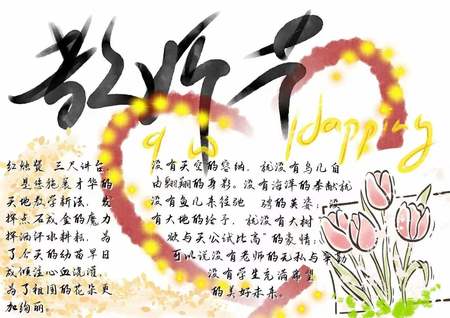 教师节
Happing
红烛凳 三尺讲台
是您施展才华的
天地教学新法，发
挥点石成金的魔力
挥洒汗水耕耘，为
了今天的幼苗早日
成倾注心血浇灌，
为了祖国的花朵更
加绚丽。
没有天空的您纳，就没有鸟儿自
由翱翔的身影。没有海洋的奉献就
没有鱼儿来往驰 骋的风采；没
有大地的给予，就没有大树
欲与天公试比高 的豪情；
可以说没有老师的无私与辛勤
没有学生充满希望
的美好未来。